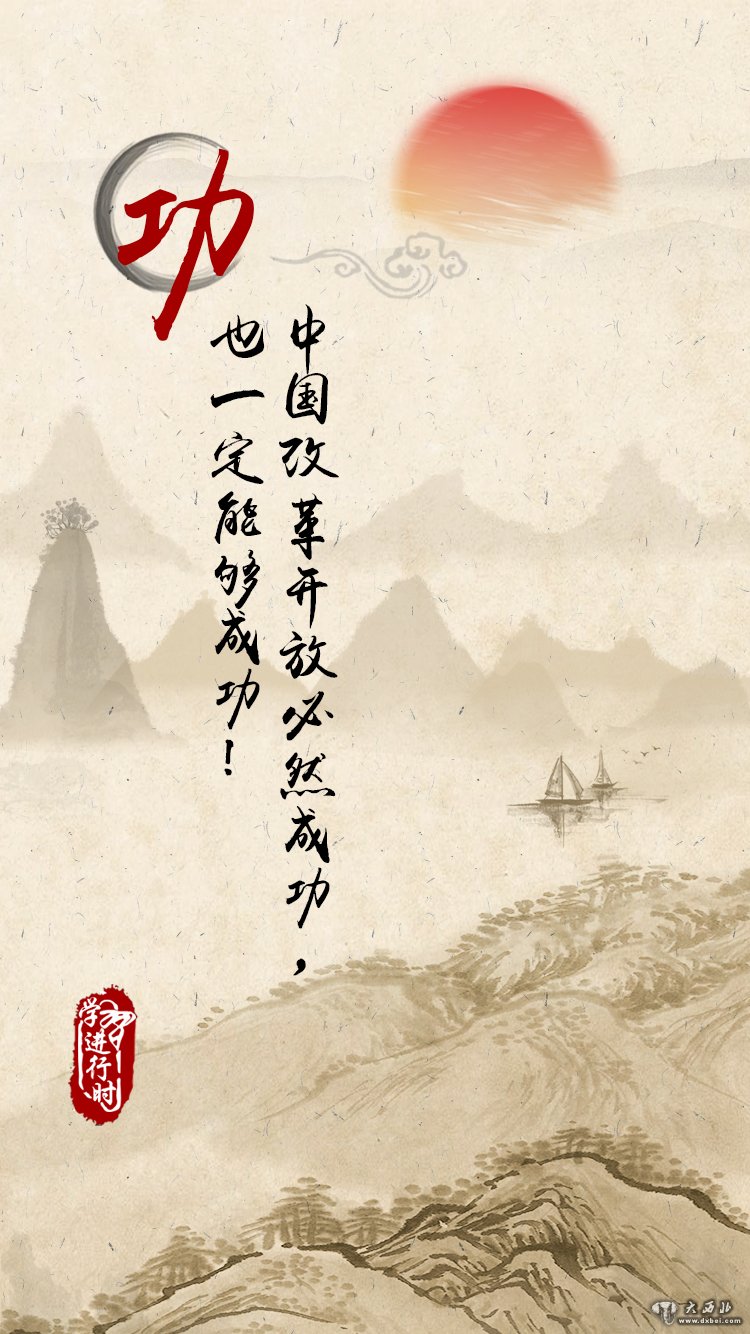 功
中国改革开放必然成功，
也一定能够成功！
学习进行时
大西北
www.dxbei.com